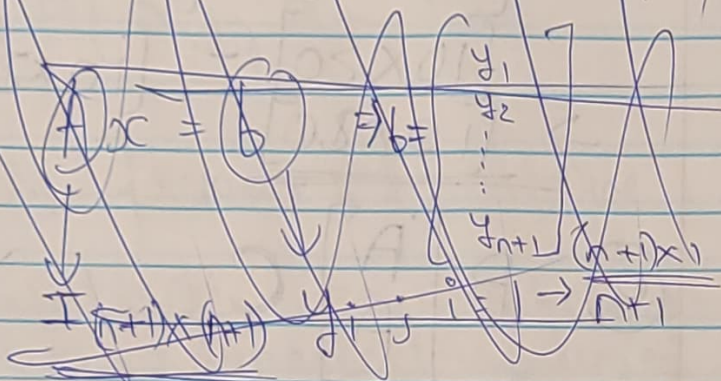 Ax = b ⇒ b = [y₁
y₂
⋮
yₙ₊₁] (n+1)×1
I (n+1)×(n+1) yⱼ, j i = 1 → n+1